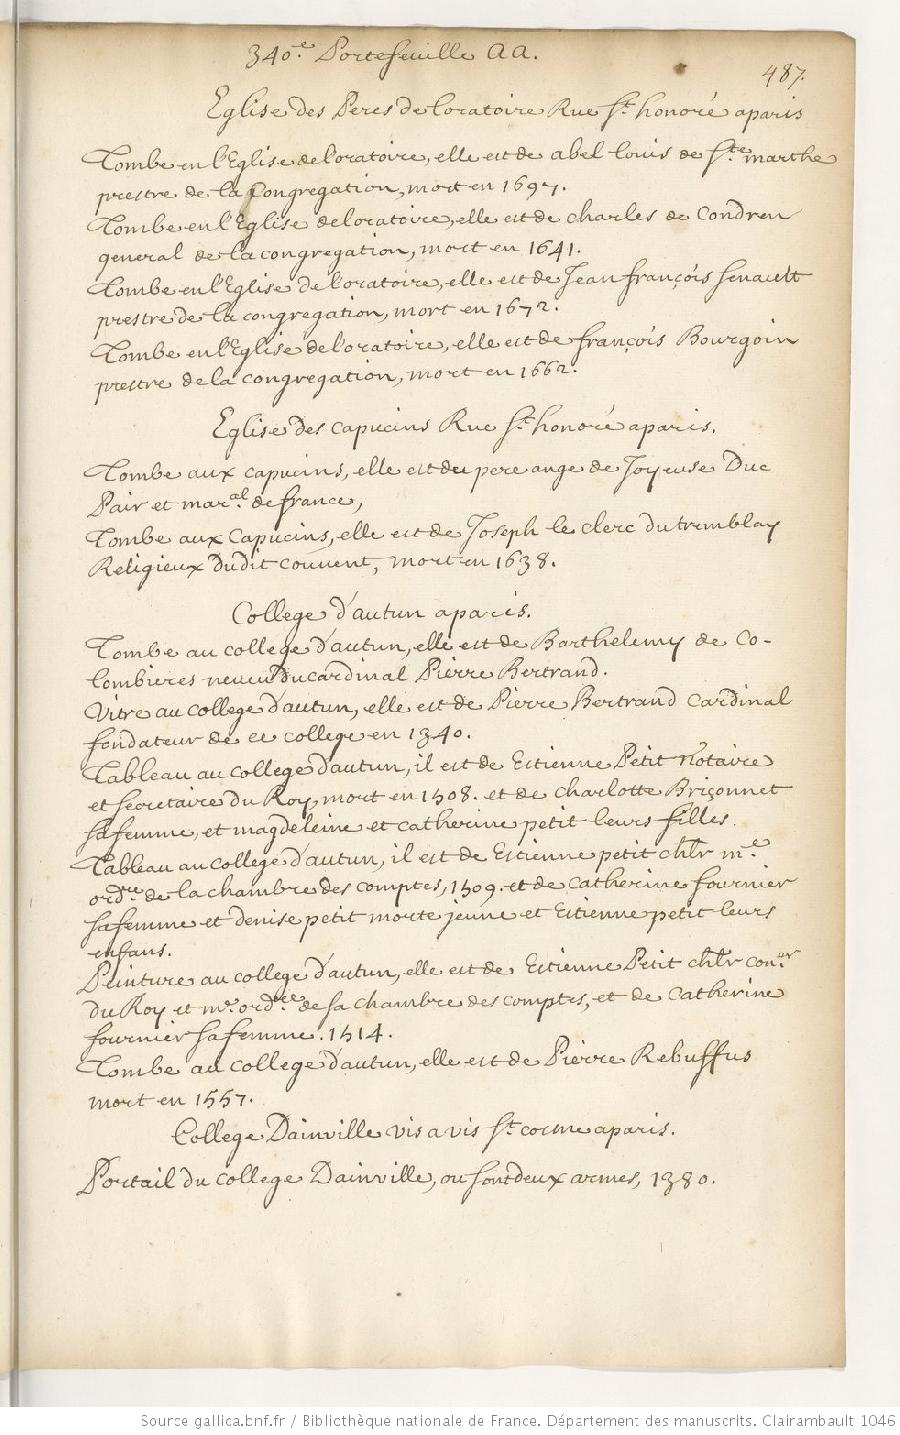 340.e Portefeuille aa.
487.
Eglise des Peres de loratoire Rue St. honoré a paris
Tombe en l'Eglise de loratoire, elle est de abel louis de Ste. marthe
prestre de la Congregation, mort en 1697.
Tombe en l'Eglise de loratoire, elle est de charles de Condren
general de la congregation, mort en 1641.
Tombe en l'Eglise de l'oratoire, elle est de Jean françois Senault
prestre de la congregation, mort en 1672.
Tombe en l'Eglise de l'oratoire, elle est de françois Bourgoin
prestre de la congregation, mort en 1662.
Eglise des capucins Rue St. honoré a paris.
Tombe aux capucins, elle est du pere ange de Joyeuse Duc
Pair et mar.al de france,
Tombe aux Capucins, elle est de Joseph le clerc du tremblay
Religieux Dudit couvent, mort en 1638.
College d'autun a paris.
Tombe au college d'autun, elle est de Barthelemy de Co-
lombieres neveu du cardinal Pierre Bertrand.
Vitre au college d'autun, elle est de Pierre Bertrand Cardinal
fondateur de ce college en 1340.
Tableau au college d'autun, il est de Estienne Petit Notaire
et secretaire du Roy, mort en 1508. et de charlotte Briçonnet
sa femme, et magdeleine et catherine petit leurs filles.
Tableau au college d'autun, il est de Estienne petit chlr m.e
ord.re de la chambre des comptes, 1509. et de Catherine fournier
sa femme et denise petit morte jeune et Estienne petit leurs
enfans.
Peinture au college d'autun, elle est de Estienne Petit chlr con.er
du Roy et m.e ord.re de sa chambre des comptes, et de Catherine
fournier sa femme. 1514.
Tombe au college d'autun, elle est de Pierre Rebuffus
mort en 1557.
College Dainville vis a vis St. cosme a paris.
Portail du college Dainville, ou sont deux armes, 1380.
Source gallica.bnf.fr / Bibliothèque nationale de France. Département des manuscrits. Clairambault 1046